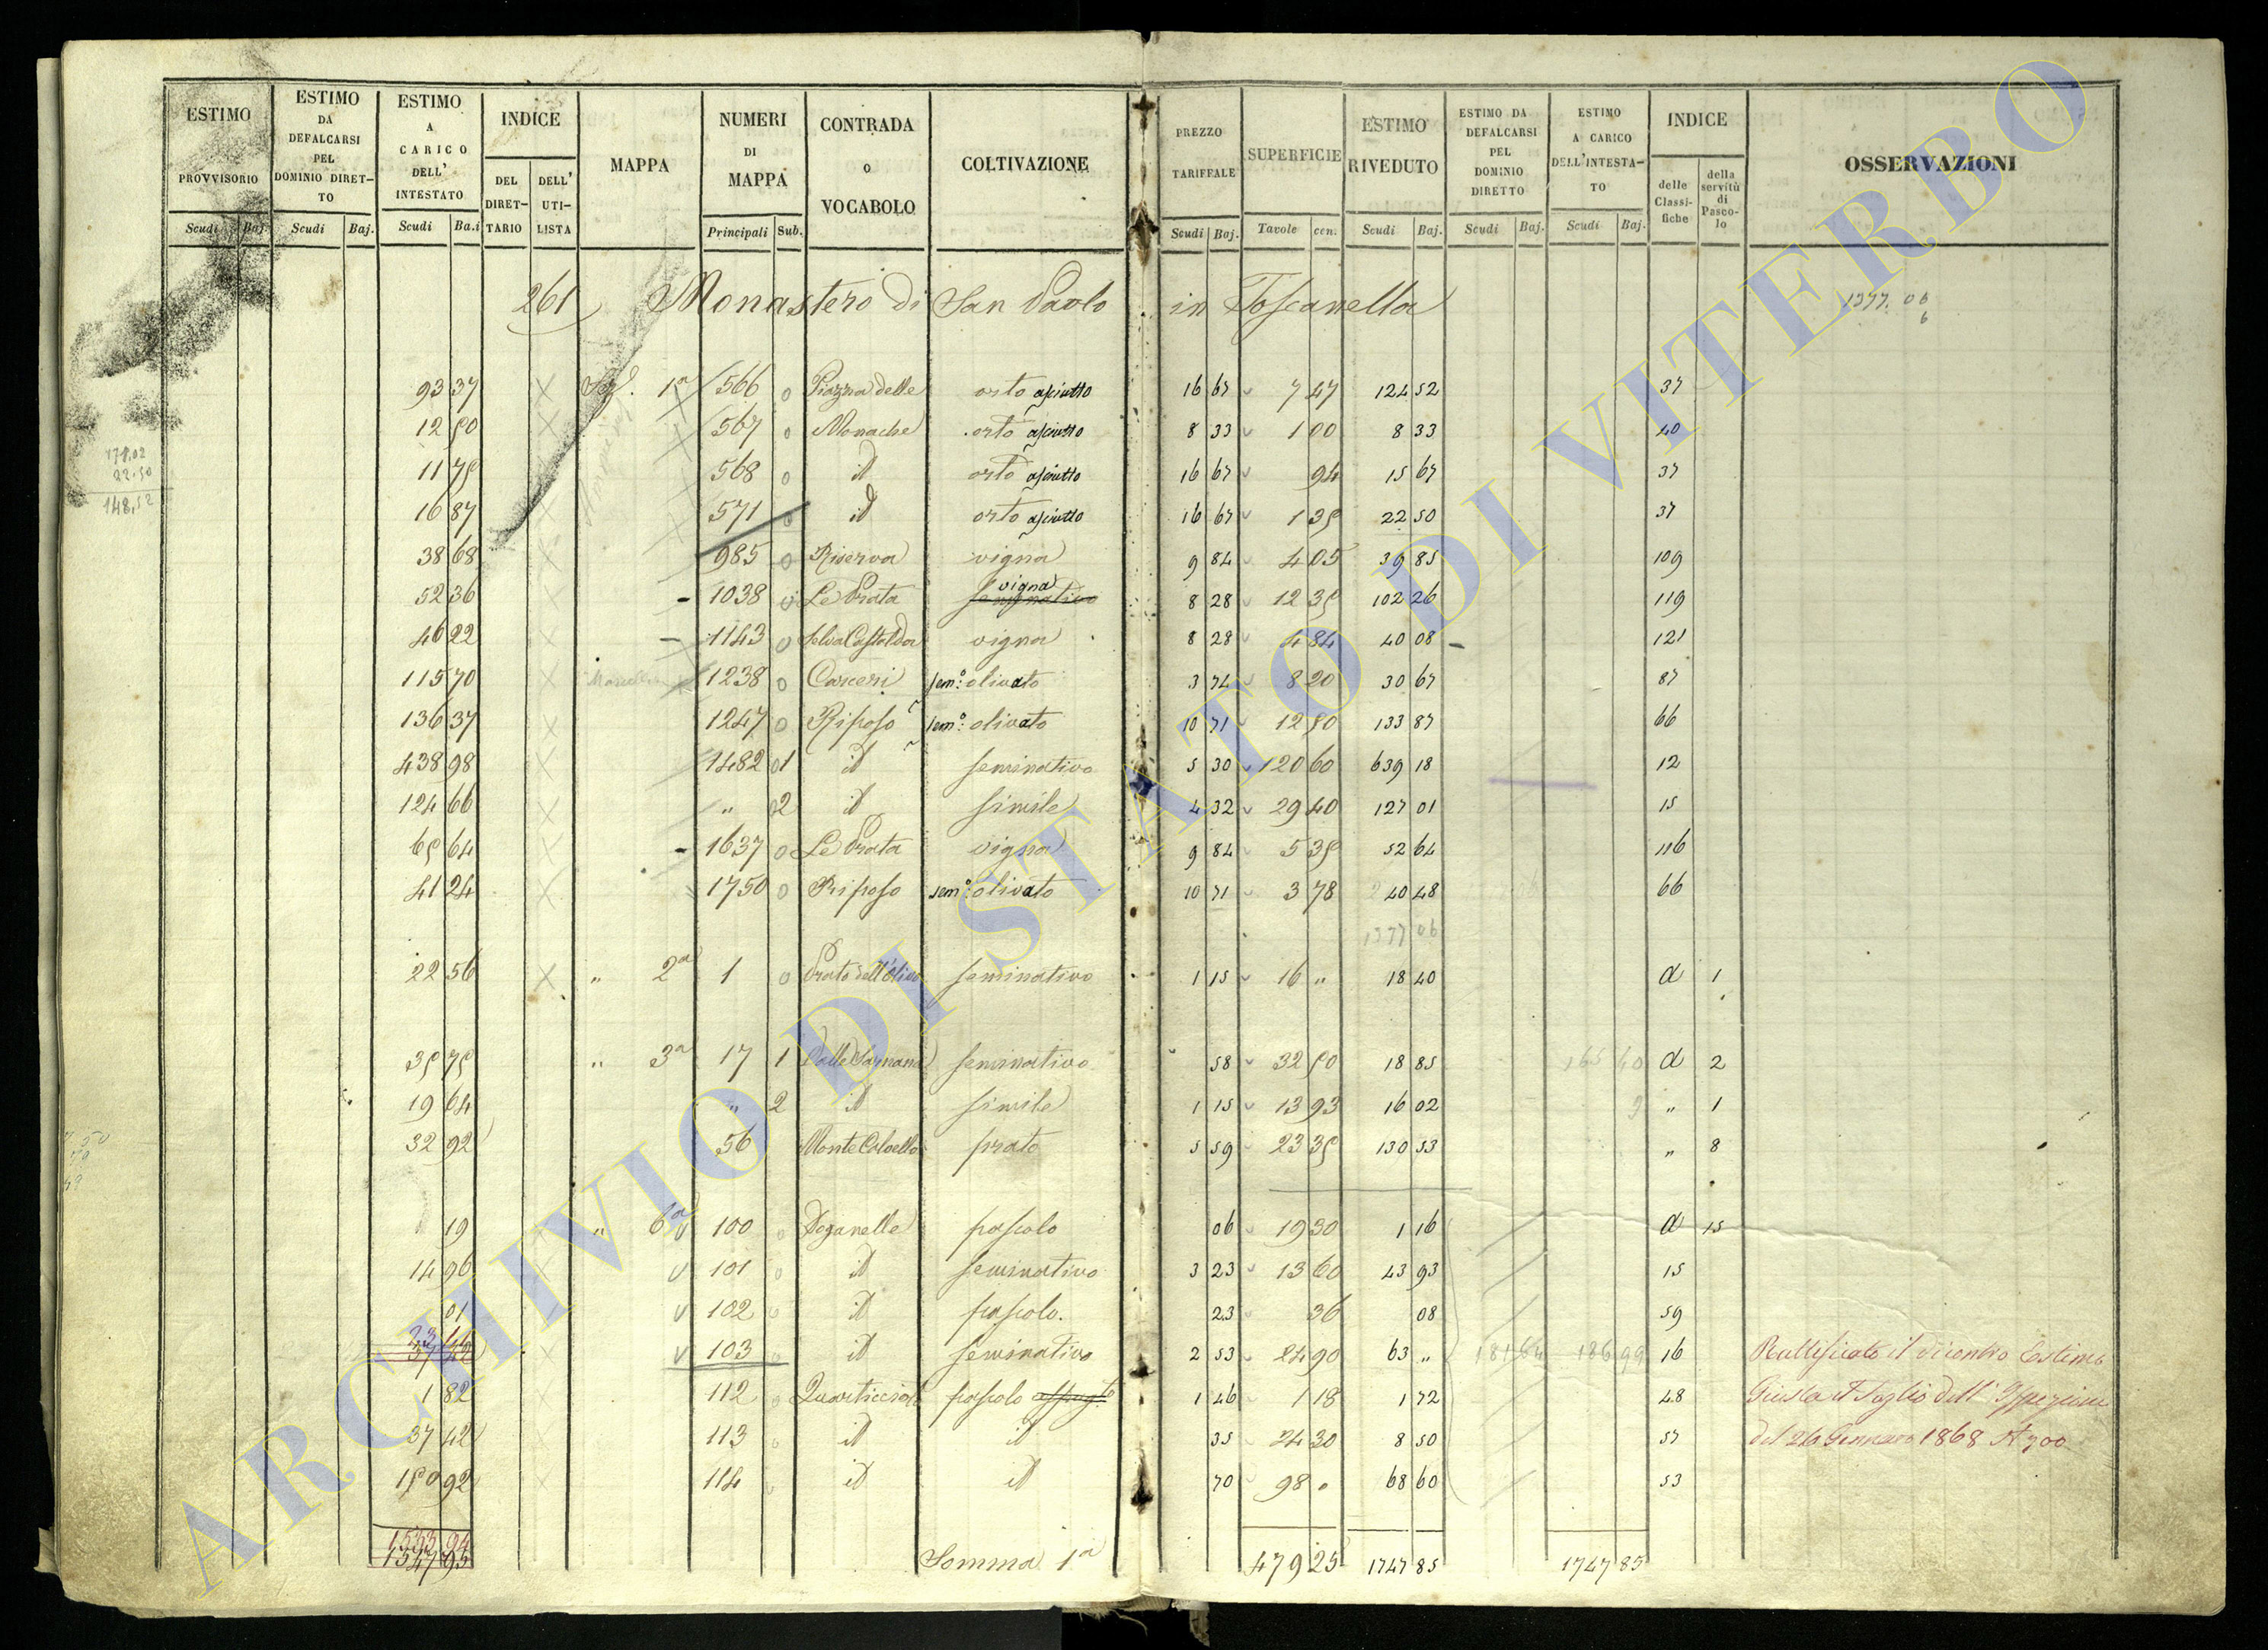 ESTIMO PROVVISORIO Scudi Baj.
ESTIMO DA DEFALCARSI PEL DOMINIO DIRET-TO Scudi Baj.
ESTIMO A CARICO DELL' INTESTATO Scudi Ba.i
INDICE DEL DIRET-TARIO DELL' UTI-LISTA
MAPPA
NUMERI DI MAPPA Principali Sub.
CONTRADA o VOCABOLO
COLTIVAZIONE
PREZZO TARIFFALE Scudi Baj.
SUPERFICIE Tavole cen.
ESTIMO RIVEDUTO Scudi Baj.
ESTIMO DA DEFALCARSI PEL DOMINIO DIRETTO Scudi Baj.
ESTIMO A CARICO DELL'INTESTA-TO Scudi Baj.
INDICE delle Classi-fiche della servitù di Pasco-lo
OSSERVAZIONI
261 Monastero di San Paolo in Toscanella 1377.06
6
93 37 1ª 566 0 Piazza delle orto asciutto 16 67 7 47 124 52 37
12 50 567 0 Monache orto asciutto 8 33 1 00 8 33 40
11 75 568 0 id orto asciutto 16 67 94 15 67 37
16 87 571 0 id orto asciutto 16 67 1 35 22 50 37
38 68 985 0 Riserva vigna 9 84 4 05 39 85 109
52 36 1038 0 Le Prata seminativo vigna 8 28 12 35 102 26 119
46 22 1143 0 Selva Castalda vigna 8 28 4 84 40 08 121
115 70 1238 0 Carceri sem.º olivato 3 74 8 20 30 67 87
136 37 1247 0 Riposo sem.º olivato 10 71 12 50 133 87 66
438 98 1482 1 id seminativo 5 30 120 60 639 18 12
124 66 " 2 id simile 4 32 29 40 127 01 15
65 64 1637 0 Le Prata vigna 9 84 5 35 52 64 116
41 24 1750 0 Riposo sem.º olivato 10 71 3 78 40 48 66
1377 06
22 56 " 2ª 1 0 Prato dell'Olivo seminativo 1 15 16 " 18 40 d 1
35 75 " 3ª 17 1 seminativo 58 32 50 18 85 165 40 d 2
19 64 " 2 id simile 1 15 13 93 16 02 " 1
32 92 56 Monte Calvello prato 5 59 23 35 130 53 " 8
19 " 6ª 100 0 Doganelle pascolo 06 19 30 1 16 d 15
14 96 101 0 id seminativo 3 23 13 60 43 93 15
01 102 0 id pascolo. 23 36 08 59
23 14
37 42 103 id seminativo 2 53 24 90 63 " 181 64 186 99 16 Rettificato il dicontro Estimo
1 82 112 0 Quarticciolo pascolo 1 46 1 18 1 72 48 Giusta il foglio dell'Ispezione
37 42 113 0 id id 35 24 30 8 50 57 del 26 Gennaro 1868 Nº 700
150 92 114 id id 70 98 " 68 60 53
1533 94
1547 95 Somma 1ª 479 25 1747 85 1747 85
171.02
22.50
148.52
ARCHIVIO DI STATO DI VITERBO